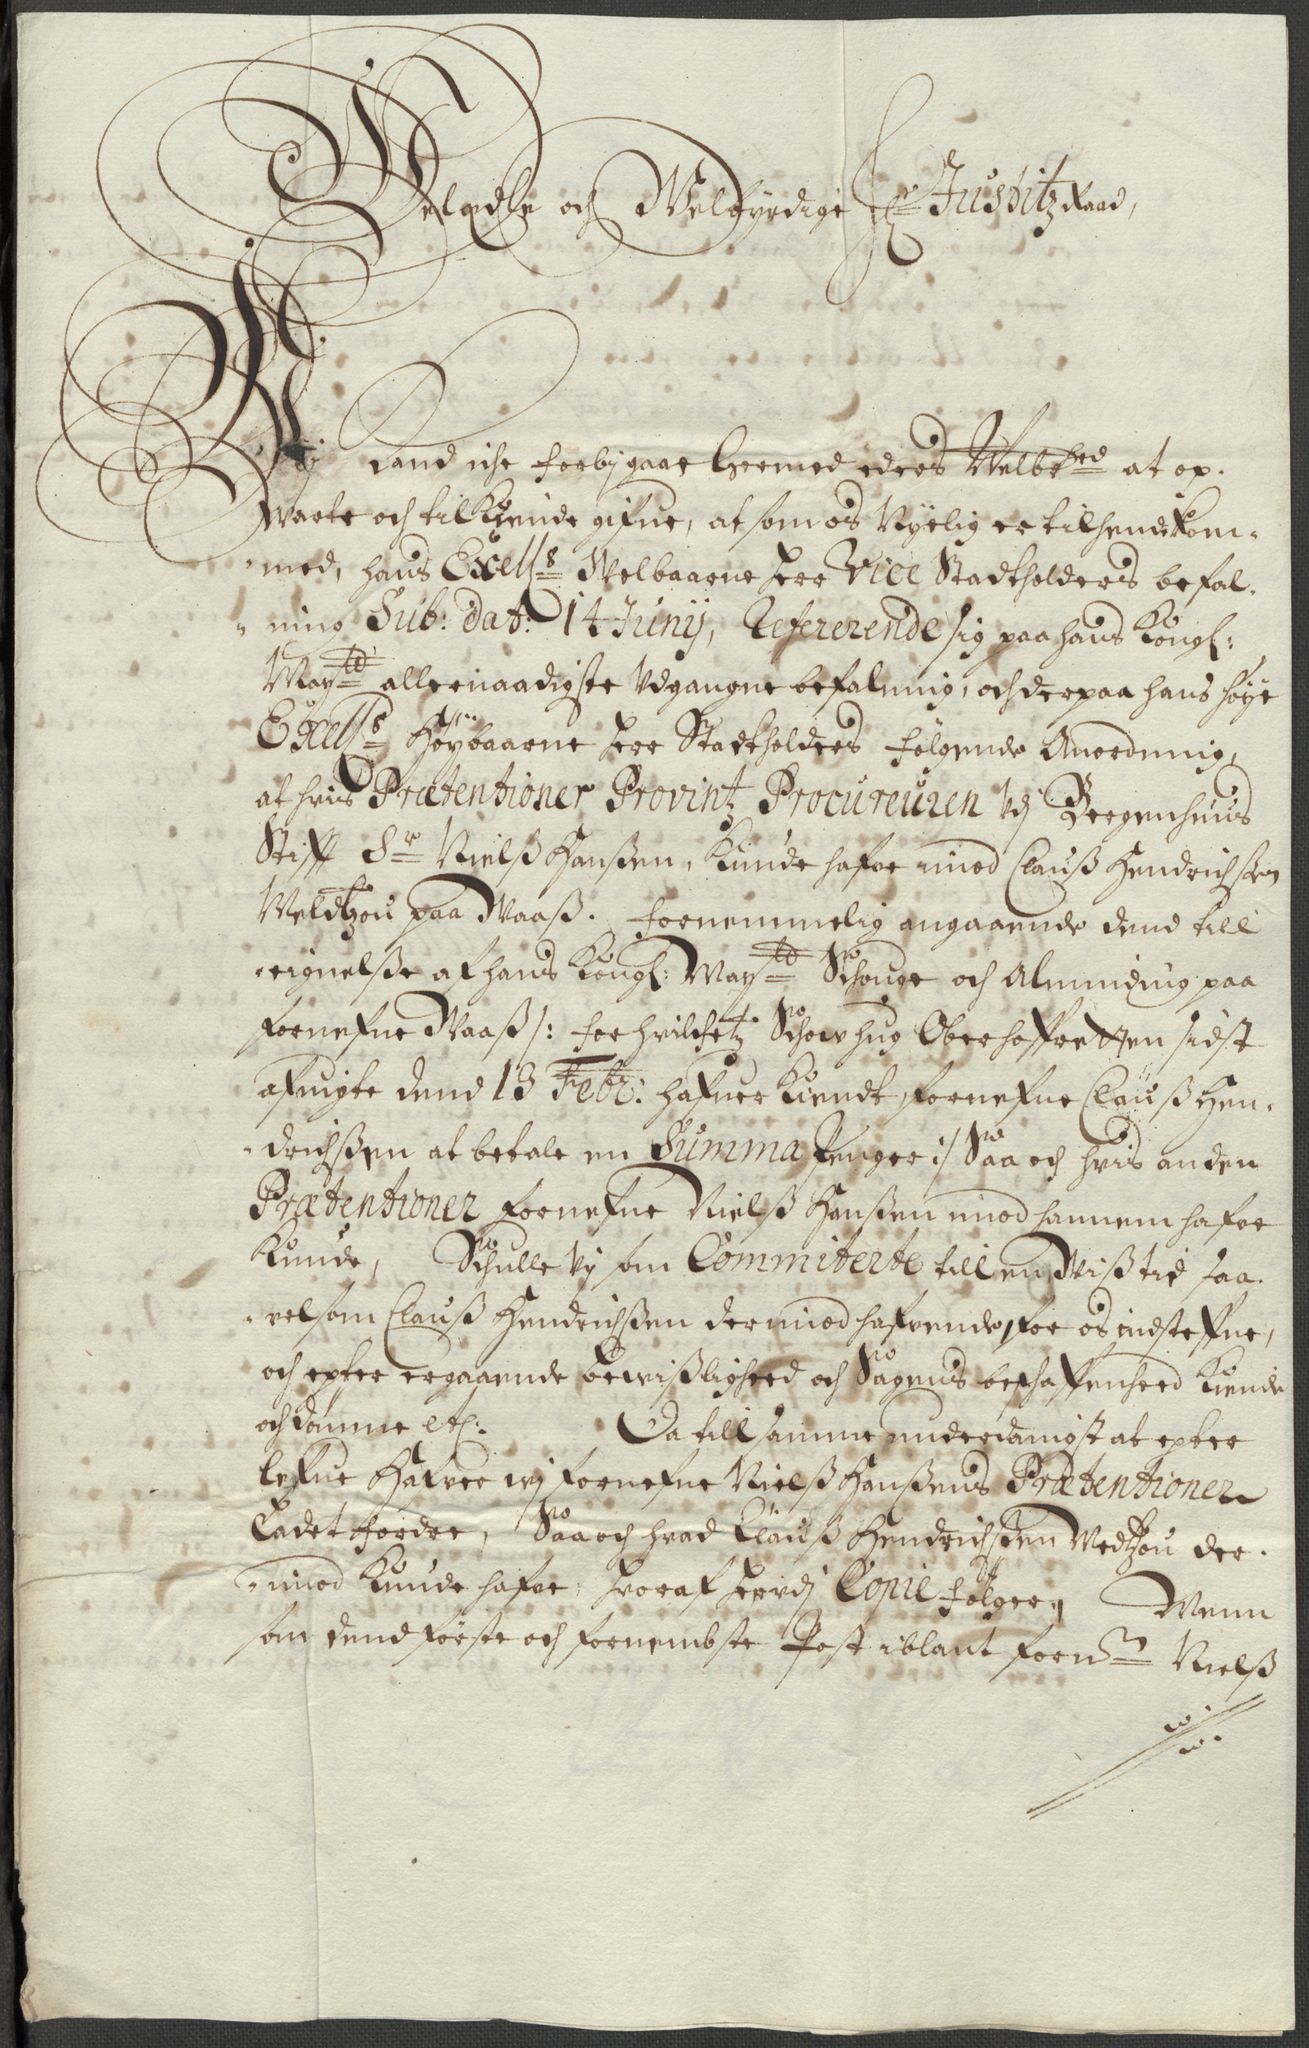 Velædle och Velbyrdige Hr Justitz Raad,
Wj kand iche forbj gaae hermed eders Welbhed at op-
warte och tilkiende gifue, at som os Nyelig er tilhende kom-
med, hans Excells Welbaarne Herr Vice Stadtholders befal-
ning Sub: dat: 14 Junij, Refererende sig paa hans Kongl:
Maytts allernaadigste Udgangne befalning, och derpaa hans høye
Excells Høybaarne Herr Stadtholders følgende Anordning,
at hvis Prætentioner Provintz Procureuren Udj Bergenhuus
Stifft Sr Nielß Hanßen, kunde hafve imod Clauß Hendrichßen
Weldtzou paa Waaß. fornemmelig angaaende dend till
eignelße af hans Kongl: Maytts Schouge och Alminding paa
fornefne Waaß /: for hvilchetz Schowhug Oberhoffretten sidst
afuigte dend 13 Febr: hafuer kiendt, fornefne Clauß Hen-
drichßen at betale en Summa Penger :/ Saa och hvis anden
Prætentioner fornefne Nielß Hanßen imod hannem hafve
kunde, Schulle Vj som Committerte till en Wiß tid saa-
velsom Clauß Hendrichßen derimod hafvende, for os indsteffne,
och epter ergaaende bewißligheed och Sagens beschaffenheed kiende
och dømme etc: Da till samme underdanigst at epter
lefue Hafver wj fornefne Nielß Hanßens Prætentioner
ladet fordre, Saa och hvad Clauß Hendrichßen Wedtzou der-
imod kunde hafve, hvoraf herudj Copie følger, Menn
som dend første och fornembste Post iblant fornne Nielß